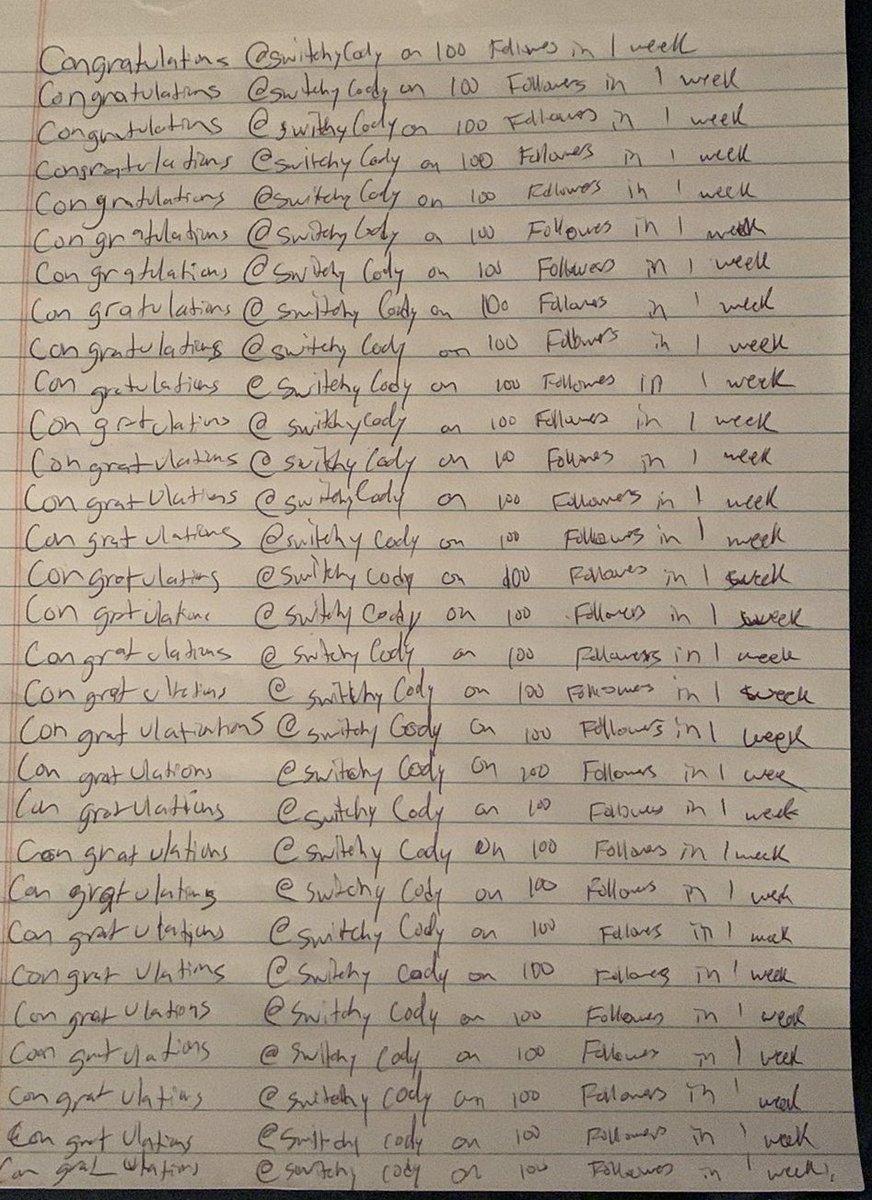 Congratulations @switchyCody on 100 Follwes in 1 week
Congratulations @switchy Cody on 100 Followers in 1 week
Congratulations @ switchyCody on 100 Followers in 1 week
Congratulations @switchy Cody on 100 Followers in 1 week
Congratulations @switchy Cody on 100 Followers in 1 week
Congratulations @switchy Cody on 100 Followes in 1 week
Congratulations @switchy Cody on 100 Followers in 1 week
Congratulations @ switchy Cody on 100 Followers in 1 week
Congratulations @switchy Cody on 100 Followers in 1 week
Congratulations @ switchy Cody on 100 Followes in 1 week
Congratulations @ switchycody on 100 Followers in 1 week
Congratulations @ switchy Cody on 100 Followes in 1 week
Congratulations @switchyCody on 100 Followers in 1 week
Congratulations @switchy Cody on 100 Followers in 1 week
Congratulations @switchy cody on 100 Followers in 1 week
Congratulations @ switchy Cody on 100 Followers in 1 week
Congratulations @ switchy Cody on 100 Followers in 1 week
Congratulations @ switchy Cody on 100 Followers in 1 week
Congratulatiations @ switchy Cody on 100 Followers in 1 week
Congratulations @switchy Cody on 100 Followers in 1 week
Congratulations @switchy Cody on 100 Followers in 1 week
Congratulations @ switchy Cody on 100 Followers in 1 week
Congratulations @ switchy Cody on 100 Followers in 1 week
Congratulations @switchy Cody on 100 Followes in 1 week
Congratulations @switchy cody on 100 Followers in 1 week
Congratulations @switchy Cody on 100 Followers in 1 week
Congratulations @ switchy Cody on 100 Followers in 1 week
Congratulations @ switchy cody on 100 Followers in 1 week
Congratulations @switchy cody on 100 Followers in 1 week
Congratulations @switchy cody on 100 Followes in 1 week.